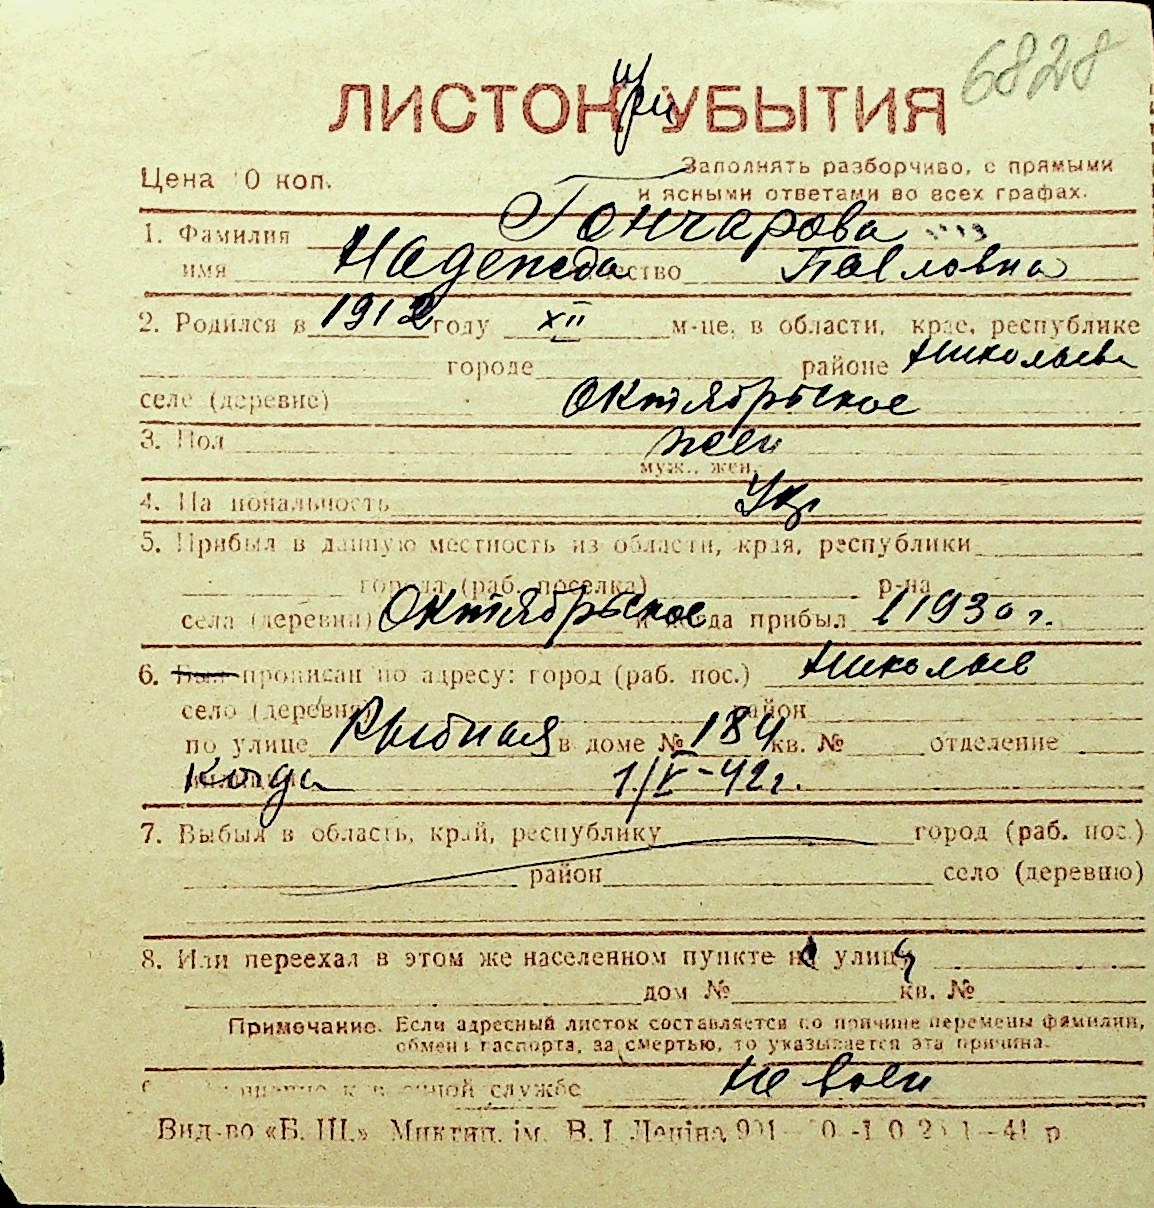 6828
ЛИСТОК УБЫТИЯ
Цена 10 коп.
Заполнять разборчиво, с прямыми
и ясными ответами во всех графах.
1. Фамилия Гончарова
имя Надежда отчество Павловна
2. Родился в 1912 году XII м-це, в области, крае, республике
городе районе Николаев
селе (деревне) Октябрьское
3. Пол жен
муж., жен.
4. Национальность Укр
5. Прибыл в данную местность из области, края, республики
города (раб. поселка) р-на
села (деревни) Октябрьское и когда прибыл 1930 г.
6. Был прописан по адресу: город (раб. пос.) Николаев
село (деревня) район
по улице Рыбная в доме № 184 кв. № отделение
Когда 1/V-42г.
7. Выбыл в область, край, республику город (раб. пос.)
район село (деревню)
8. Или переехал в этом же населенном пункте на улицу
дом № кв. №
Примечание. Если адресный листок составляется по причине перемены фамилии,
обмена паспорта, за смертью, то указывается эта причина.
к военной службе Не воен
Вид-во «Б. Ш.» Миктип. ім. В. І. Леніна 41 р.